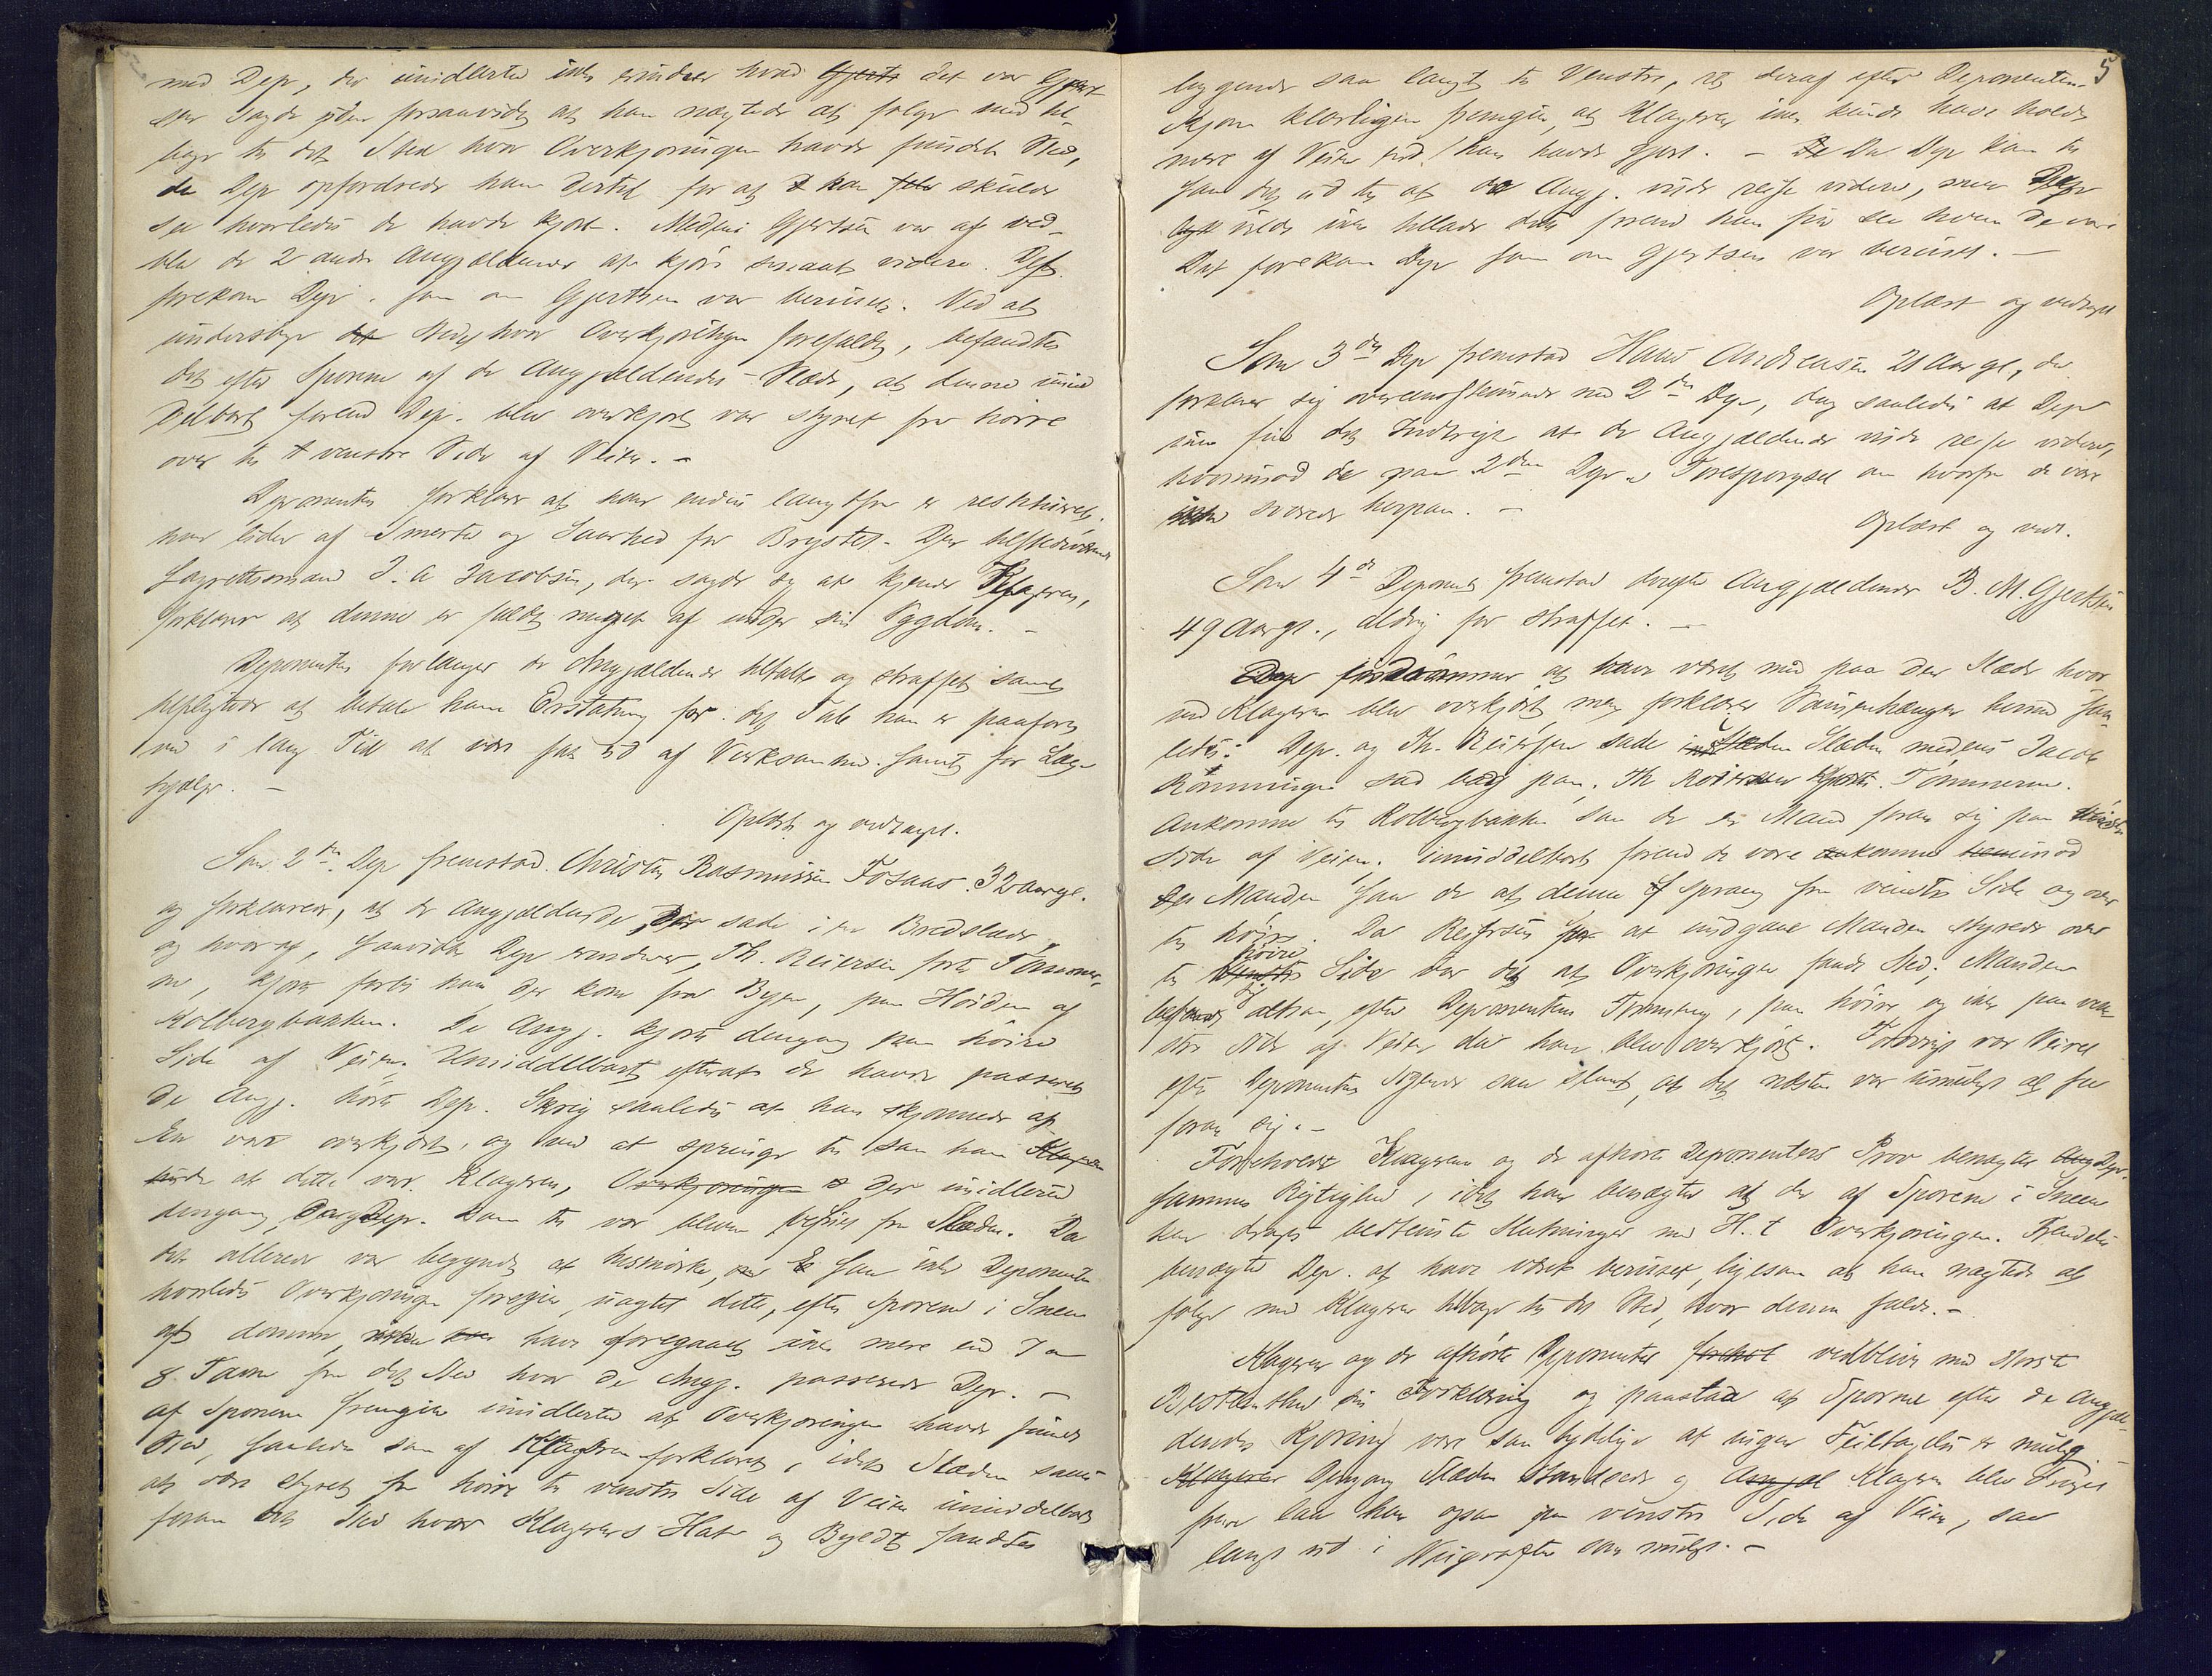 med Dep, der imidlertid ikke erindrer hvad Gjerts det var Gjert-
sen sagde uden forsaavidt at han nægtede at følge med til-
bage til det Sted hvor Overkjøringen havde fundet Sted,
da Dep opfordrede ham dertil for at han skulde
se hvorledes de havde kjørt. Medens Gjertsen var af ved-
blev de 2 andre Angjældende at kjøre videre. Det
forekom Dep. som om Gjertsen var beruset. Ved at
undersøge det Sted hvor Overkjøringen forefaldt, befandtes
det efter Sporene af de Angjældendes Slæde, at denne umid
delbart forend Dep. blev overkjørt var styret fra høire
over til venstre Side af Veien. -
Deponenten forklarer at han endnu langtfra er restitueret,
han lider af Smerte og Saarhed for Brystet. Den tilstedeværende
Lagrettesmand J. A Jacobsen, der sagde sig at kjende Klageren,
forklarer at denne er faldt meget af under sin Sygdom. -
Deponenten forlanger de Angjældende tiltalt og straffet samt
tilpligtede at betale ham Erstatning for det Tab han er paaført
ved i lang Tid at være sat ud af Virksomhed samt for Læge
hjælp. -
Oplæst og vedtaget.
Som 2den Dep fremstod Christen Rasmussen Fosaas 32 aar gl.
og forklarede, at de Angjældende, der sade i en Bredslæde,
og hvoraf, saavidt Dep erindrer, Th. Reiersen førte Tømmer-
ne, kjørte forbi ham der kom fra Byen, paa Høiden af
Kolbergbakken. De Angj. kjørte dengang paa høire
Side af Veien. Umiddelbart efterat de havde passeret
De Angj. hørte Dep. Skrig saaledes at han skjønnede at
En var overkjørt, og ved at springe til saa han Klageren
at dette var Klageren, Overkjøringen der imidlertid
dengang Dep. kom til var bleven befriet fra Slæden. Da
det allerede var begyndt at tusmørke, saa ikke Deponenten
hvorledes Overkjøringen foregik, uagtet dette, efter Sporene i Sneen
at dømme, have foregaaet ikke mere end 7 a
8 Favne fra det Sted hvor de Angj. passerede Dep. -
af Sporene fremgik imidlertid at Overkjøringen havde fundet
Sted, saaledes som af Klageren forklaret, idet Slæden saaes
at være styret fra høire til venstre Side af Veien umiddelbart
foran det Sted hvor Klagerens Hat og Byldt fandtes
5
liggende saa langt til Venstre, at deraf efter Deponentens
Skjøn klarligen fremgik, at Klageren ikke kunde have holdt
mere af Veien end han havde gjort. - Da Dep kom til
saa det ud til at de Angj. vilde reise videre, men Dep
vilde ikke tillade dette førend han fik se hvem de vare
Det forekom Dep som om Gjertsen var beruset. -
Oplæst og vedtaget
Som 3die Dep fremstod Hans Andreasen 21 Aar gl, der
forklarer sig overensstemmende med 2den Dep, dog saaledes at Dep
ikke fik det Indtryk at de Angjældende vilde reise videre,
hvorimod de paa 2den Dep.s Forespørgsel om hvorfra de vare
ikke svarede herpaa. -
Oplæst og vedt.
Som 4de Deponent fremstod derefter Angjældende B. M. Gjertsen
49 Aar gl., aldrig før straffet. -
Dep indrømmer at have været med paa den Slæde hvor
ved Klageren blev overkjørt, men forklarer Sammenhængen hermed saa-
ledes: Dep. og Th. Reiersen sade i Slæden medens Jacob
Rønningen sad bag paa. Th Reiersen kjørte Tømmerne.
Ankomne til Kolbergbakken saa de en Mand foran sig paa venstre
Side af Veien. Umiddelbart førend de vare ankomne
den Manden saa de at denne sprang fra venstre Side og over
til høire. Da Reiersen for at undgaae Manden styrede over
til høire Side var det at Overkjøringen fandt Sted; Manden
befandt sig altsaa, efter Deponentens Formening, paa høire og ikke paa ven-
stre Side af Veien da han blev overkjørt. Forøvrigt var Veiret
efter Deponentens Sigende saa slemt, at det næsten var umuligt at see
foran sig. -
Foreholdt Klagerens og de afhørte Deponenters Prov benægter Dep.
sammes Rigtighed, idet han benægter at der af Sporene i Sneen
kan drages bestemte Slutninger med H. t Overkjøringen. Fremdeles
benægter Dep. at have været beruset, ligesom at han nægtede at
følge med Klageren tilbage til det Sted, hvor denne faldt. -
Klageren og de afhørte Deponenter vedblive med største
Bestemthed sin Forklaring og paastaa at Sporene efter de Angjæl-
dendes Kjøring vare saa tydelige at ingen Feiltagelse er mulig
Klageren Dengang Slæden standsede og Klageren blev dragen
frem laa han ogsaa paa venstre Side af Veien, saa
langt ud i Veigrøften som muligt. -